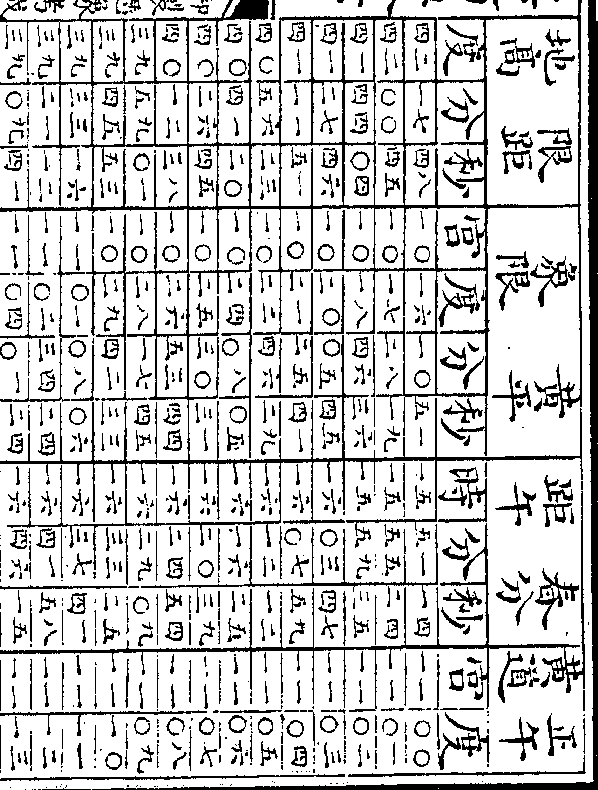 地高 限距 象限 黄平 距午 春分 黄道 正午
度 分 秒 宮 度 分 秒 時 分 秒 宮 度
四二 一七 四八 一〇 一六 一〇 五一 一五 五一 一四 一一 〇〇
四二 〇〇 四五 一〇 一七 二八 一九 一五 五五 二四 一一 〇一
四一 四四 〇四 一〇 一八 四六 三六 一五 五九 三五 一一 〇二
四一 二七 四六 一〇 二〇 〇五 四五 一六 〇三 四七 一一 〇三
四一 一一 五一 一〇 二一 二五 四一 一六 〇七 五九 一一 〇四
四〇 五六 二三 一〇 二二 四六 二九 一六 一二 一二 一一 〇五
四〇 四一 二〇 一〇 二四 〇八 〇五 一六 一六 二五 一一 〇六
四〇 二六 四五 一〇 二五 三〇 三一 一六 二〇 三九 一一 〇七
四〇 一二 三八 一〇 二六 五三 四四 一六 二四 五四 一一 〇八
三九 五九 〇一 一〇 二八 一七 四五 一六 二九 〇九 一一 〇九
三九 四五 五三 一〇 二九 四二 三三 一六 三三 二五 一一 一〇
三九 三三 一六 一一 〇一 〇八 〇六 一六 三七 四一 一一 一一
三九 二一 一二 一一 〇二 三四 二四 一六 四一 五八 一一 一二
三九 〇九 四一 一一 〇四 〇一 二四 一六 四六 一五 一一 一三